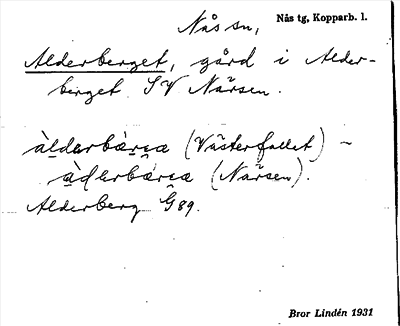 Nås sn,
Nås tg, Kopparb. l.
Alderberget, gård i Alder-
berget SV Närsen.
àldərbàrɛa (Västerfallet) –
àdərbàrɛa (Närsen).
Alderberg G89.
Bror Lindén 1931